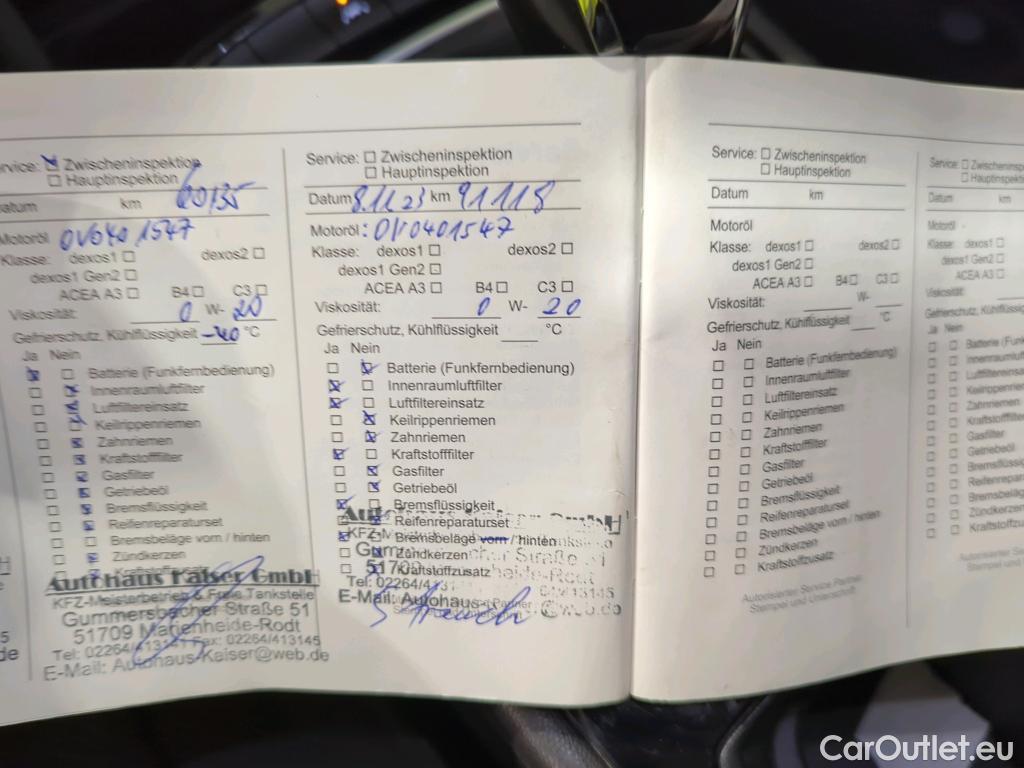 rvice: ☒ Zwischeninspektion
☐ Hauptinspektion
Datum km 60135
Motoröl OV0401547
Klasse: dexos1 ☐ dexos2 ☐
dexos1 Gen2 ☐
ACEA A3 ☐ B4 ☐ C3 ☐
Viskosität: 0 W- 20
Gefrierschutz, Kühlflüssigkeit -40 °C
Ja Nein
☒ ☐ Batterie (Funkfernbedienung)
☐ ☒ Innenraumluftfilter
☐ ☒ Luftfiltereinsatz
☐ ☒ Keilrippenriemen
☐ ☒ Zahnriemen
☐ ☒ Kraftstofffilter
☐ ☒ Gasfilter
☐ ☒ Getriebeöl
☐ ☒ Bremsflüssigkeit
☐ ☒ Reifenreparaturset
Bremsbeläge vorn / hinten
☐ ☒ Zündkerzen
Autohaus Kaiser GmbH
KFZ-Meisterbetrieb & Freie Tankstelle
Gummersbacher Straße 51
51709 Marienheide-Rodt
Tel: 02264/413141 Fax: 02264/413145
E-Mail: Autohaus/Kaiser@web.de
Service: ☐ Zwischeninspektion
☐ Hauptinspektion
Datum 8.11.23 km 91118
Motoröl: OV0401547
Klasse: dexos1 ☐ dexos2 ☐
dexos1 Gen2 ☐
ACEA A3 ☐ B4 ☐ C3 ☐
Viskosität: 0 W- 20
Gefrierschutz, Kühlflüssigkeit °C
Ja Nein
☐ ☒ Batterie (Funkfernbedienung)
☒ ☐ Innenraumluftfilter
☒ ☐ Luftfiltereinsatz
☐ ☒ Keilrippenriemen
☐ ☒ Zahnriemen
☒ ☐ Kraftstofffilter
☐ ☒ Gasfilter
☐ ☒ Getriebeöl
☒ ☐ Bremsflüssigkeit
Reifenreparaturset
Bremsbeläge vorn / hinten
Zündkerzen
Kraftstoffzusatz
51709
Tel: 02264/413
E-Mail: Autohaus @web.de
Service: ☐ Zwischeninspektion
☐ Hauptinspektion
Datum km
Motoröl
Klasse: dexos1 ☐ dexos2 ☐
dexos1 Gen2 ☐
ACEA A3 ☐ B4 ☐ C3 ☐
Viskosität: W-
Gefrierschutz, Kühlflüssigkeit °C
Ja Nein
☐ ☐ Batterie (Funkfernbedienung)
☐ ☐ Innenraumluftfilter
☐ ☐ Luftfiltereinsatz
☐ ☐ Keilrippenriemen
☐ ☐ Zahnriemen
☐ ☐ Kraftstofffilter
☐ ☐ Gasfilter
☐ ☐ Getriebeöl
☐ ☐ Bremsflüssigkeit
☐ ☐ Reifenreparaturset
☐ ☐ Bremsbeläge vorn / hinten
☐ ☐ Zündkerzen
☐ ☐ Kraftstoffzusatz
Autorisierter Service Partner
Stempel und Unterschrift
Service: ☐ Zwischeninspektio
☐ Hauptinspektion
Datum km
Motoröl
Klasse: dexos1 ☐
dexos1 Gen2 ☐
ACEA A3 ☐
Viskosität:
Gefrierschutz, Kühlflüssig
Ja Nein
☐ ☐ Batterie (Funkf
☐ ☐ Innenraumluftf
☐ ☐ Luftfiltereinsat
☐ ☐ Keilrippenriem
☐ ☐ Zahnriemen
☐ ☐ Kraftstofffilter
☐ ☐ Gasfilter
☐ ☐ Getriebeöl
☐ ☐ Bremsflüssig
☐ ☐ Reifenrepara
☐ ☐ Bremsbeläg
☐ ☐ Zündkerzen
☐ ☐ Kraftstoffzu
Autorisierter Se
Stempel und
CarOutlet.eu